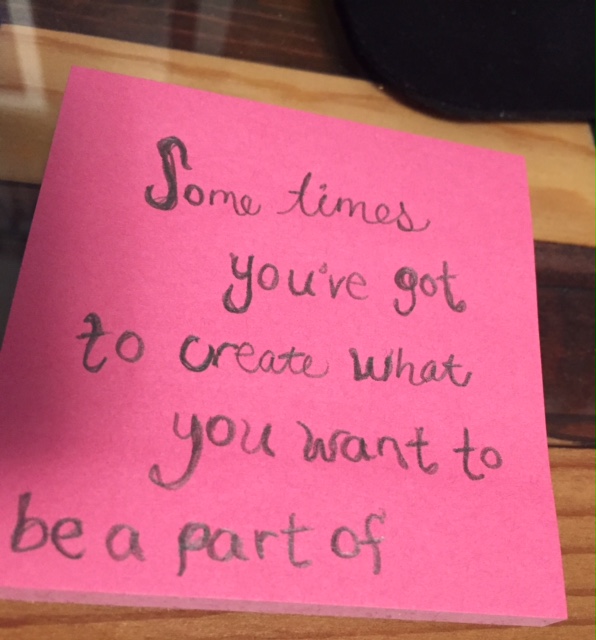 Some times
you've got
to create what
you want to
be a part of